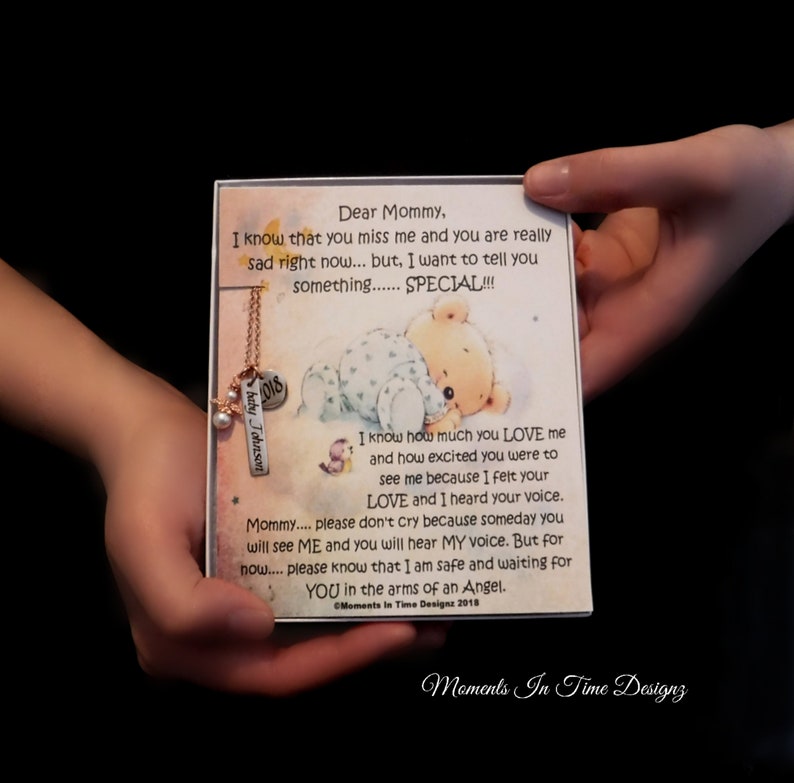 Dear Mommy,
I know that you miss me and you are really
sad right now... but, I want to tell you
something...... SPECIAL!!!
2018
baby Johnson
I know how much you LOVE me
and how excited you were to
see me because I felt your
LOVE and I heard your voice.
Mommy.... please don't cry because someday you
will see ME and you will hear MY voice. But for
now.... please know that I am safe and waiting for
YOU in the arms of an Angel.
©Moments In Time Designz 2018
Moments In Time Designz